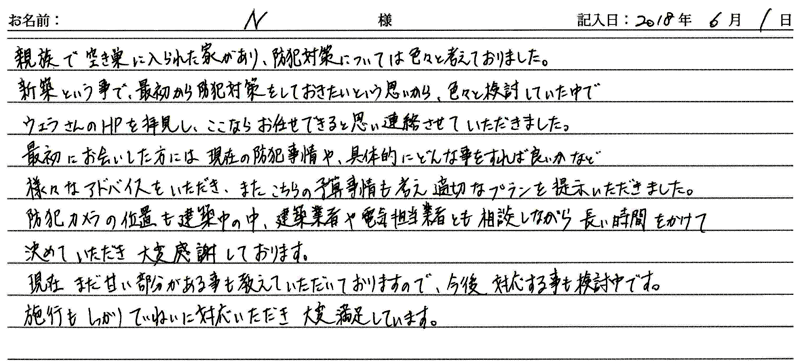 お名前： N 様 記入日：2018年 6月 1日
親族で空き巣に入られた家があり、防犯対策については色々と考えておりました。
新築という事で、最初から防犯対策をしておきたいという思いから、色々と検討していた中で
ウェラさんのHPを拝見し、ここならお任せできると思い連絡させていただきました。
最初にお会いした方には現在の防犯事情や、具体的にどんな事をすれば良いかなど
様々なアドバイスをいただき、またこちらの予算事情も考え適切なプランを提示いただきました。
防犯カメラの位置も建築中の中、建築業者や電気担当業者とも相談しながら長い時間をかけて
決めていただき大変感謝しております。
現在まだ甘い部分がある事も教えていただいておりますので、今後対応する事も検討中です。
施行もしっかりていねいに対応いただき大変満足しています。